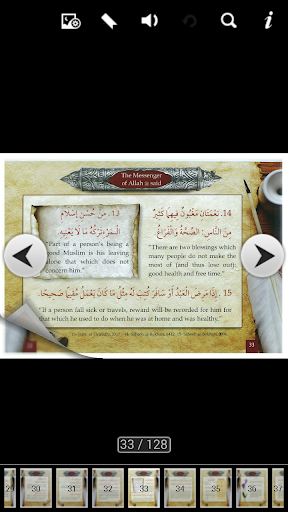 The Messenger
of Allah ﷺ said
13. مِنْ حُسْنِ إِسْلَامِ
الْمَرْءِ تَرْكُهُ مَا لَا يَعْنِيهِ.
"Part of a person's being a
good Muslim is his leaving
alone that which does not
concern him."
14. نِعْمَتَانِ مَغْبُونٌ فِيهِمَا كَثِيرٌ
مِنَ النَّاسِ: الصِّحَّةُ وَالْفَرَاغُ.
"There are two blessings which
many people do not make the
most of (and thus lose out):
good health and free time."
15. إِذَا مَرِضَ الْعَبْدُ أَوْ سَافَرَ كُتِبَ لَهُ مِثْلُ مَا كَانَ يَعْمَلُ مُقِيمًا صَحِيحًا.
"If a person fall sick or travels, reward will be recorded for him for
that which he used to do when he was at home and was healthy."
33
33 / 128
30
31
32
33
34
35
36
37